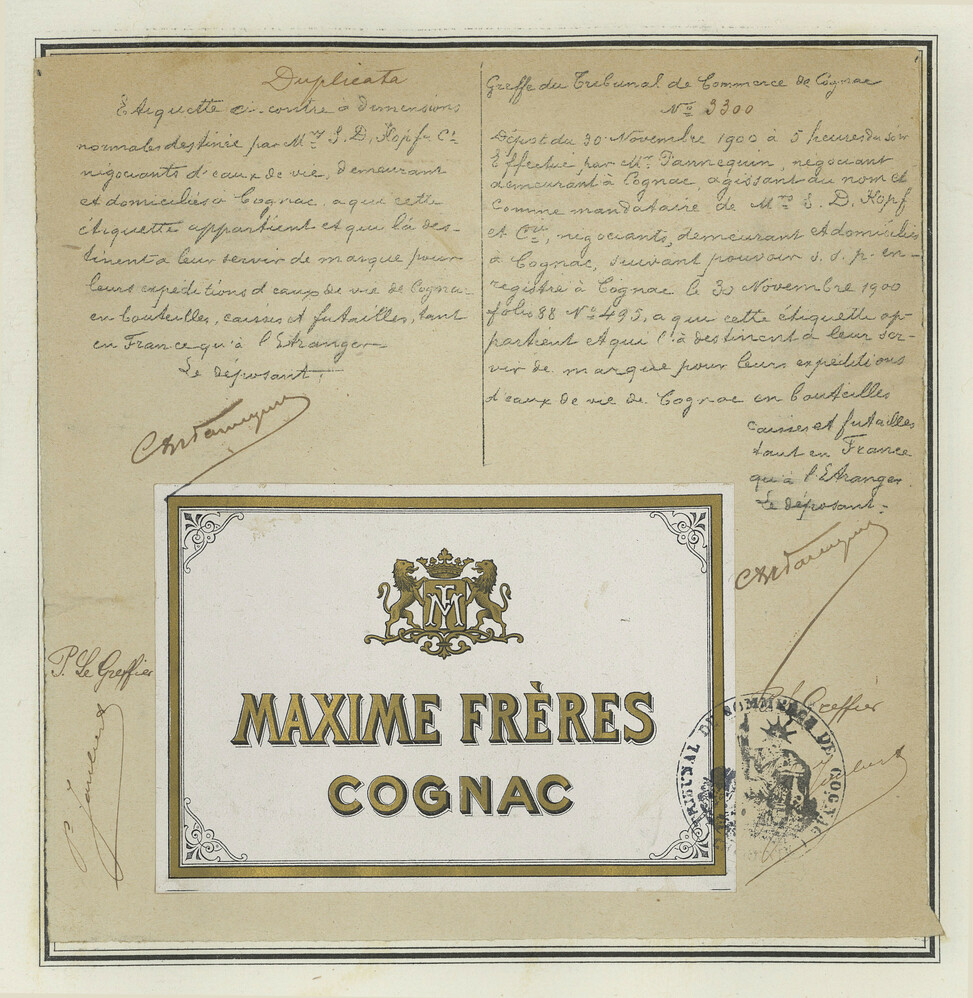 Duplicata
Etiquette ci-contre à dimensions
normales destinée par Mrs S. D, Kopf & Cie
négociants d'eaux de vie, demeurant
et domiciliés à Cognac, a qui cette
étiquette appartient et qui l'à des-
tinent à leur servir de marque pour
leurs expéditions d'eaux de vie de Cognac
en bouteilles, caisses et futailles, tant
en France qu'à l'Etranger
Le déposant,
Greffe du Tribunal de Commerce de Cognac
No 3300
Dépôt du 30 Novembre 1900 à 5 heures du soir
Effectué par Mr Pannequin, négociant
demeurant à Cognac, agissant au nom et
comme mandataire de Mrs S. D, Kopf
et Cie, négociants, demeurant et domiciliés
à Cognac, suivant pouvoir s. s. p. en-
registré à Cognac le 30 Novembre 1900
folio 88 No 495, a qui cette étiquette ap-
partient et qui l'à destinent à leur ser-
vir de marque pour leurs expéditions
d'eaux de vie de Cognac en bouteilles
caisses et futailles
tant en France
qu'à l'Etranger
Le déposant
P. Le Greffier
Le Greffier
TM
MAXIME FRÈRES
COGNAC
TRIBUNAL DE COMMERCE DE COGNAC